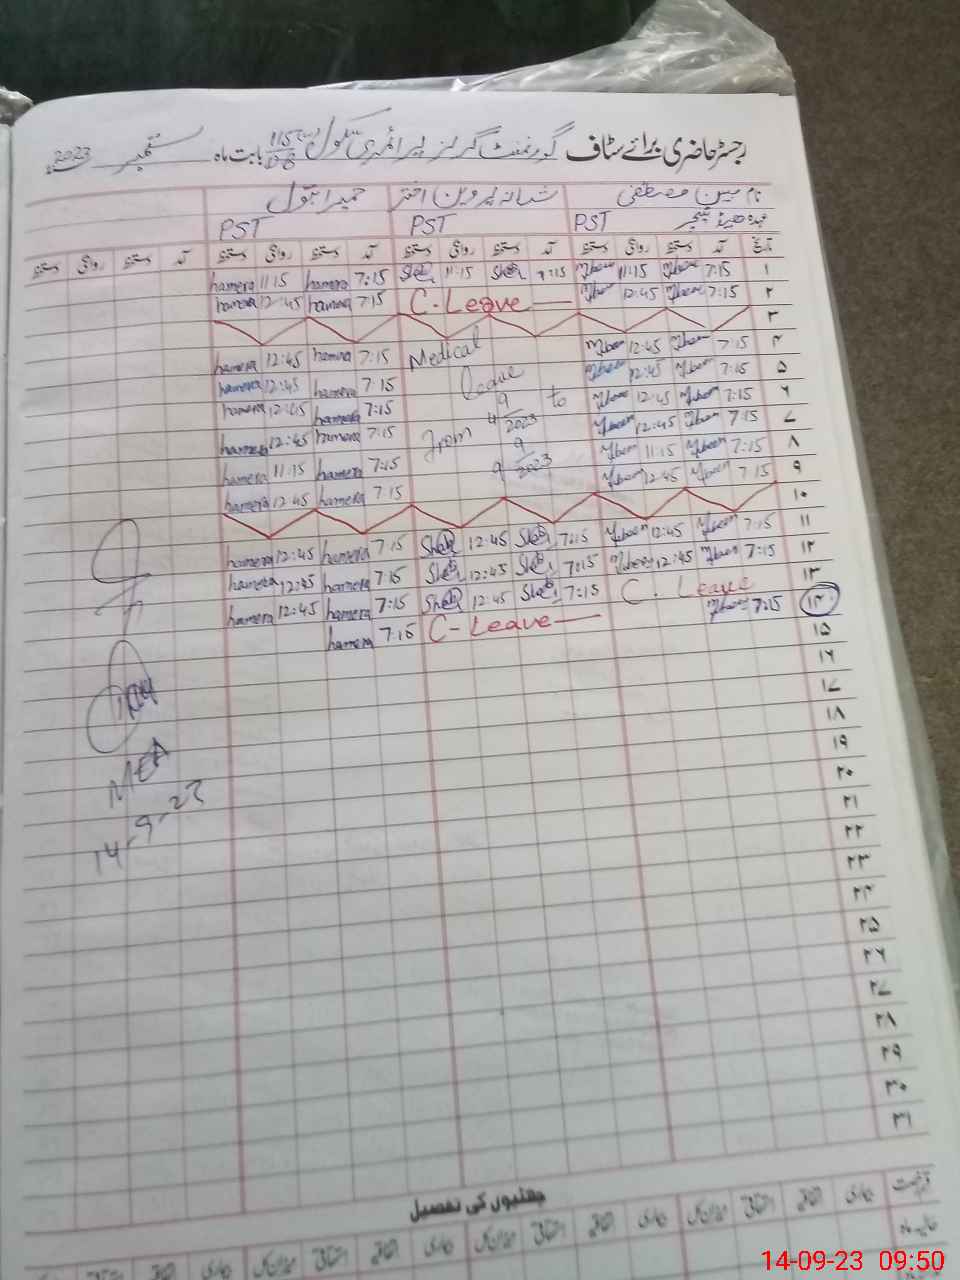 رجسٹر حاضری برائے سٹاف گورنمنٹ گرلز پرائمری سکول 115 بابت ماہ ستمبر 2023
نام مبین مصطفی شبانہ پروین اختر حمیرا بتول
عہدہ ہیڈ ٹیچر PST PST PST
تاریخ آمد دستخط روانگی دستخط آمد دستخط روانگی دستخط آمد دستخط روانگی دستخط آمد دستخط روانگی دستخط
۱ 7:15 11:15 7:15 11:15 7:15 hamera 11:15 hamera
۲ 7:15 12:45 C-Leave 7:15 hamera 12:45 hamera
۳
۴ 7:15 12:45 Medical 7:15 hamera 12:45 hamera
۵ 7:15 12:45 leave 7:15 hamera 12:45 hamera
۶ 7:15 12:45 7:15 hamera 12:45 hamera
۷ 7:15 12:45 from 4/9/2023 to 7:15 hamera 12:45 hamera
۸ 7:15 11:15 9/9/2023 7:15 hamera 11:15 hamera
۹ 7:15 12:45 7:15 hamera 12:45 hamera
۱۰
۱۱ 7:15 12:45 7:15 12:45 7:15 hamera 12:45 hamera
۱۲ 7:15 12:45 7:15 12:45 7:15 hamera 12:45 hamera
۱۳ C. Leave 7:15 12:45 7:15 hamera 12:45 hamera
۱۴ 7:15 C-Leave 7:15 hamera
۱۵
۱۶
۱۷
۱۸
۱۹
۲۰
۲۱
۲۲
۲۳
۲۴
۲۵
۲۶
۲۷
۲۸
۲۹
۳۰
۳۱
MEA
14-9-23
چھٹیوں کی تفصیل
14-09-23 09:50